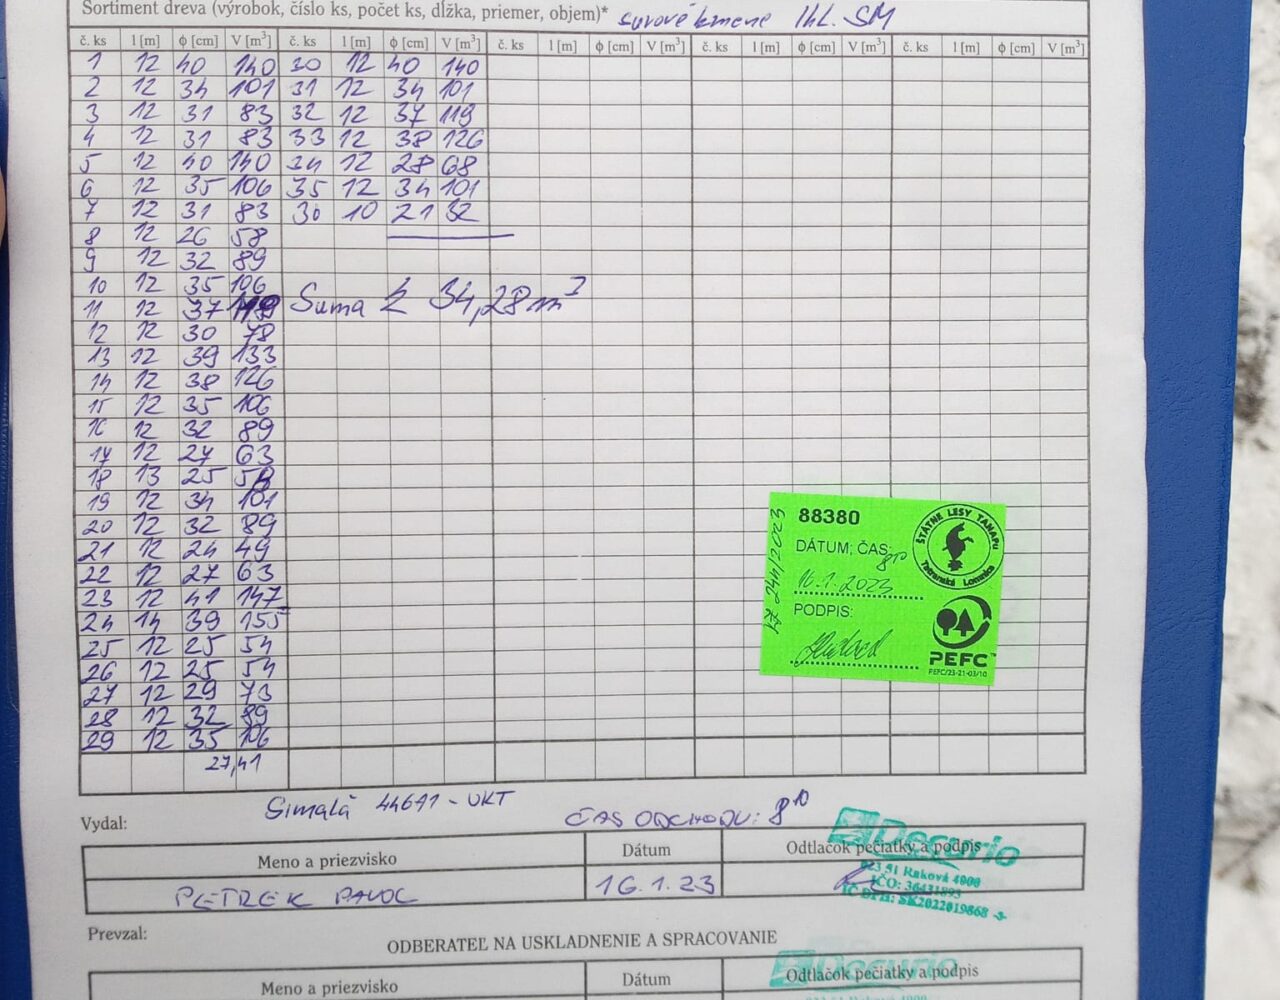 Sortiment dreva (výrobok, číslo ks, počet ks, dĺžka, priemer, objem)* surové kmene Ihl. SM
č. ks l [m] ϕ [cm] V [m³] č. ks l [m] ϕ [cm] V [m³] č. ks l [m] ϕ [cm] V [m³] č. ks l [m] ϕ [cm] V [m³] č. ks l [m] ϕ [cm] V [m³]
1 12 40 140 30 12 40 140
2 12 34 101 31 12 34 101
3 12 31 83 32 12 37 119
4 12 31 83 33 12 38 126
5 12 40 140 34 12 28 68
6 12 35 106 35 12 34 101
7 12 31 83 36 10 21 32
8 12 26 58
9 12 32 89
10 12 35 106
11 12 37 119 Suma Σ 34,28 m³
12 12 30 78
13 12 39 133
14 12 38 126
15 12 35 106
16 12 32 89
17 12 27 63
18 13 25 58
19 12 34 101
20 12 32 89
21 12 24 49
22 12 27 63
23 12 41 147
24 14 39 155
25 12 25 54
26 12 25 54
27 12 29 73
28 12 32 89
29 12 35 106
27,41
88380
DÁTUM; ČAS: 8¹⁰
16.1.2023
PODPIS:
ŠTÁTNE LESY TANAPu
Tatranská Lomnica
PEFC™
PEFC/23-21-03/10
Vydal:
ČAS ODCHODU: 8¹⁰
Meno a priezvisko Dátum Odtlačok pečiatky a podpis
PETREK PAVOL 16.1.23
Decurio
023 51 Raková 4000
IČO: 36431893
IČ DPH: SK2022019868 -3-
Prevzal:
ODBERATEĽ NA USKLADNENIE A SPRACOVANIE
Decurio
Meno a priezvisko Dátum Odtlačok pečiatky a podpis